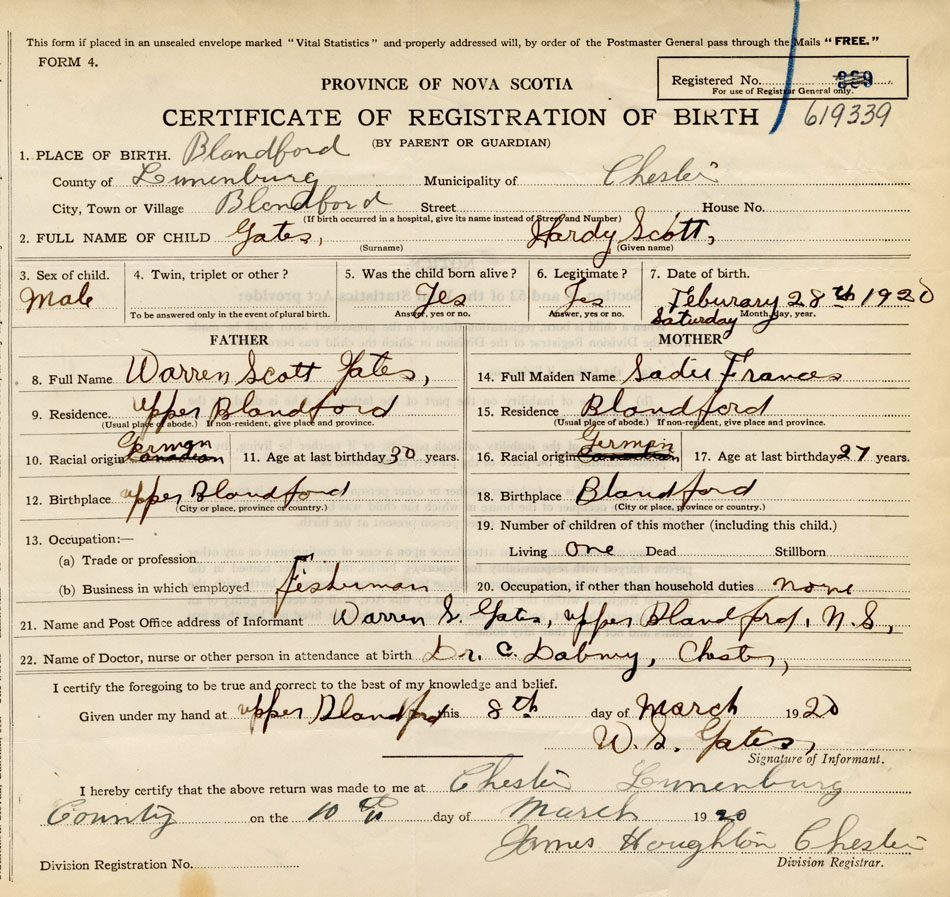 This form if placed in an unsealed envelope marked "Vital Statistics" and properly addressed will, by order of the Postmaster General pass through the Mails "FREE."
FORM 4.
PROVINCE OF NOVA SCOTIA
Registered No.
For use of Registrar General only.
CERTIFICATE OF REGISTRATION OF BIRTH
619339
(BY PARENT OR GUARDIAN)
1. PLACE OF BIRTH. Blandford
County of Lunenburg Municipality of Chester
City, Town or Village Blandford Street House No.
(If birth occurred in a hospital, give its name instead of Street and Number)
2. FULL NAME OF CHILD Gates, Hardy Scott,
(Surname) (Given name)
3. Sex of child. 4. Twin, triplet or other? 5. Was the child born alive? 6. Legitimate? 7. Date of birth.
Male Yes Yes Feburary 28th 1920
To be answered only in the event of plural birth. Answer, yes or no. Answer, yes or no. Saturday Month, day, year.
FATHER
8. Full Name Warren Scott Gates,
9. Residence. Upper Blandford
(Usual place of abode.) If non-resident, give place and province.
10. Racial origin German Canadian 11. Age at last birthday 30 years.
12. Birthplace upper Blandford
(City or place, province or country.)
13. Occupation:—
(a) Trade or profession
(b) Business in which employed Fisherman
MOTHER
14. Full Maiden Name Sadie Frances
15. Residence Blandford
(Usual place of abode.) If non-resident, give place and province.
16. Racial origin German 17. Age at last birthday 27 years.
18. Birthplace Blandford
(City or place, province or country.)
19. Number of children of this mother (including this child.)
Living one Dead Stillborn
20. Occupation, if other than household duties none
21. Name and Post Office address of Informant Warren S. Gates, upper Blandford, N.S,
22. Name of Doctor, nurse or other person in attendance at birth Dr. C. Chester,
I certify the foregoing to be true and correct to the best of my knowledge and belief.
Given under my hand at upper Blandford this 8th day of March 1920
W. S. Gates,
Signature of Informant.
I hereby certify that the above return was made to me at Chester Lunenburg
County on the 10th day of March 1920
James Houghton Chester
Division Registration No. Division Registrar.